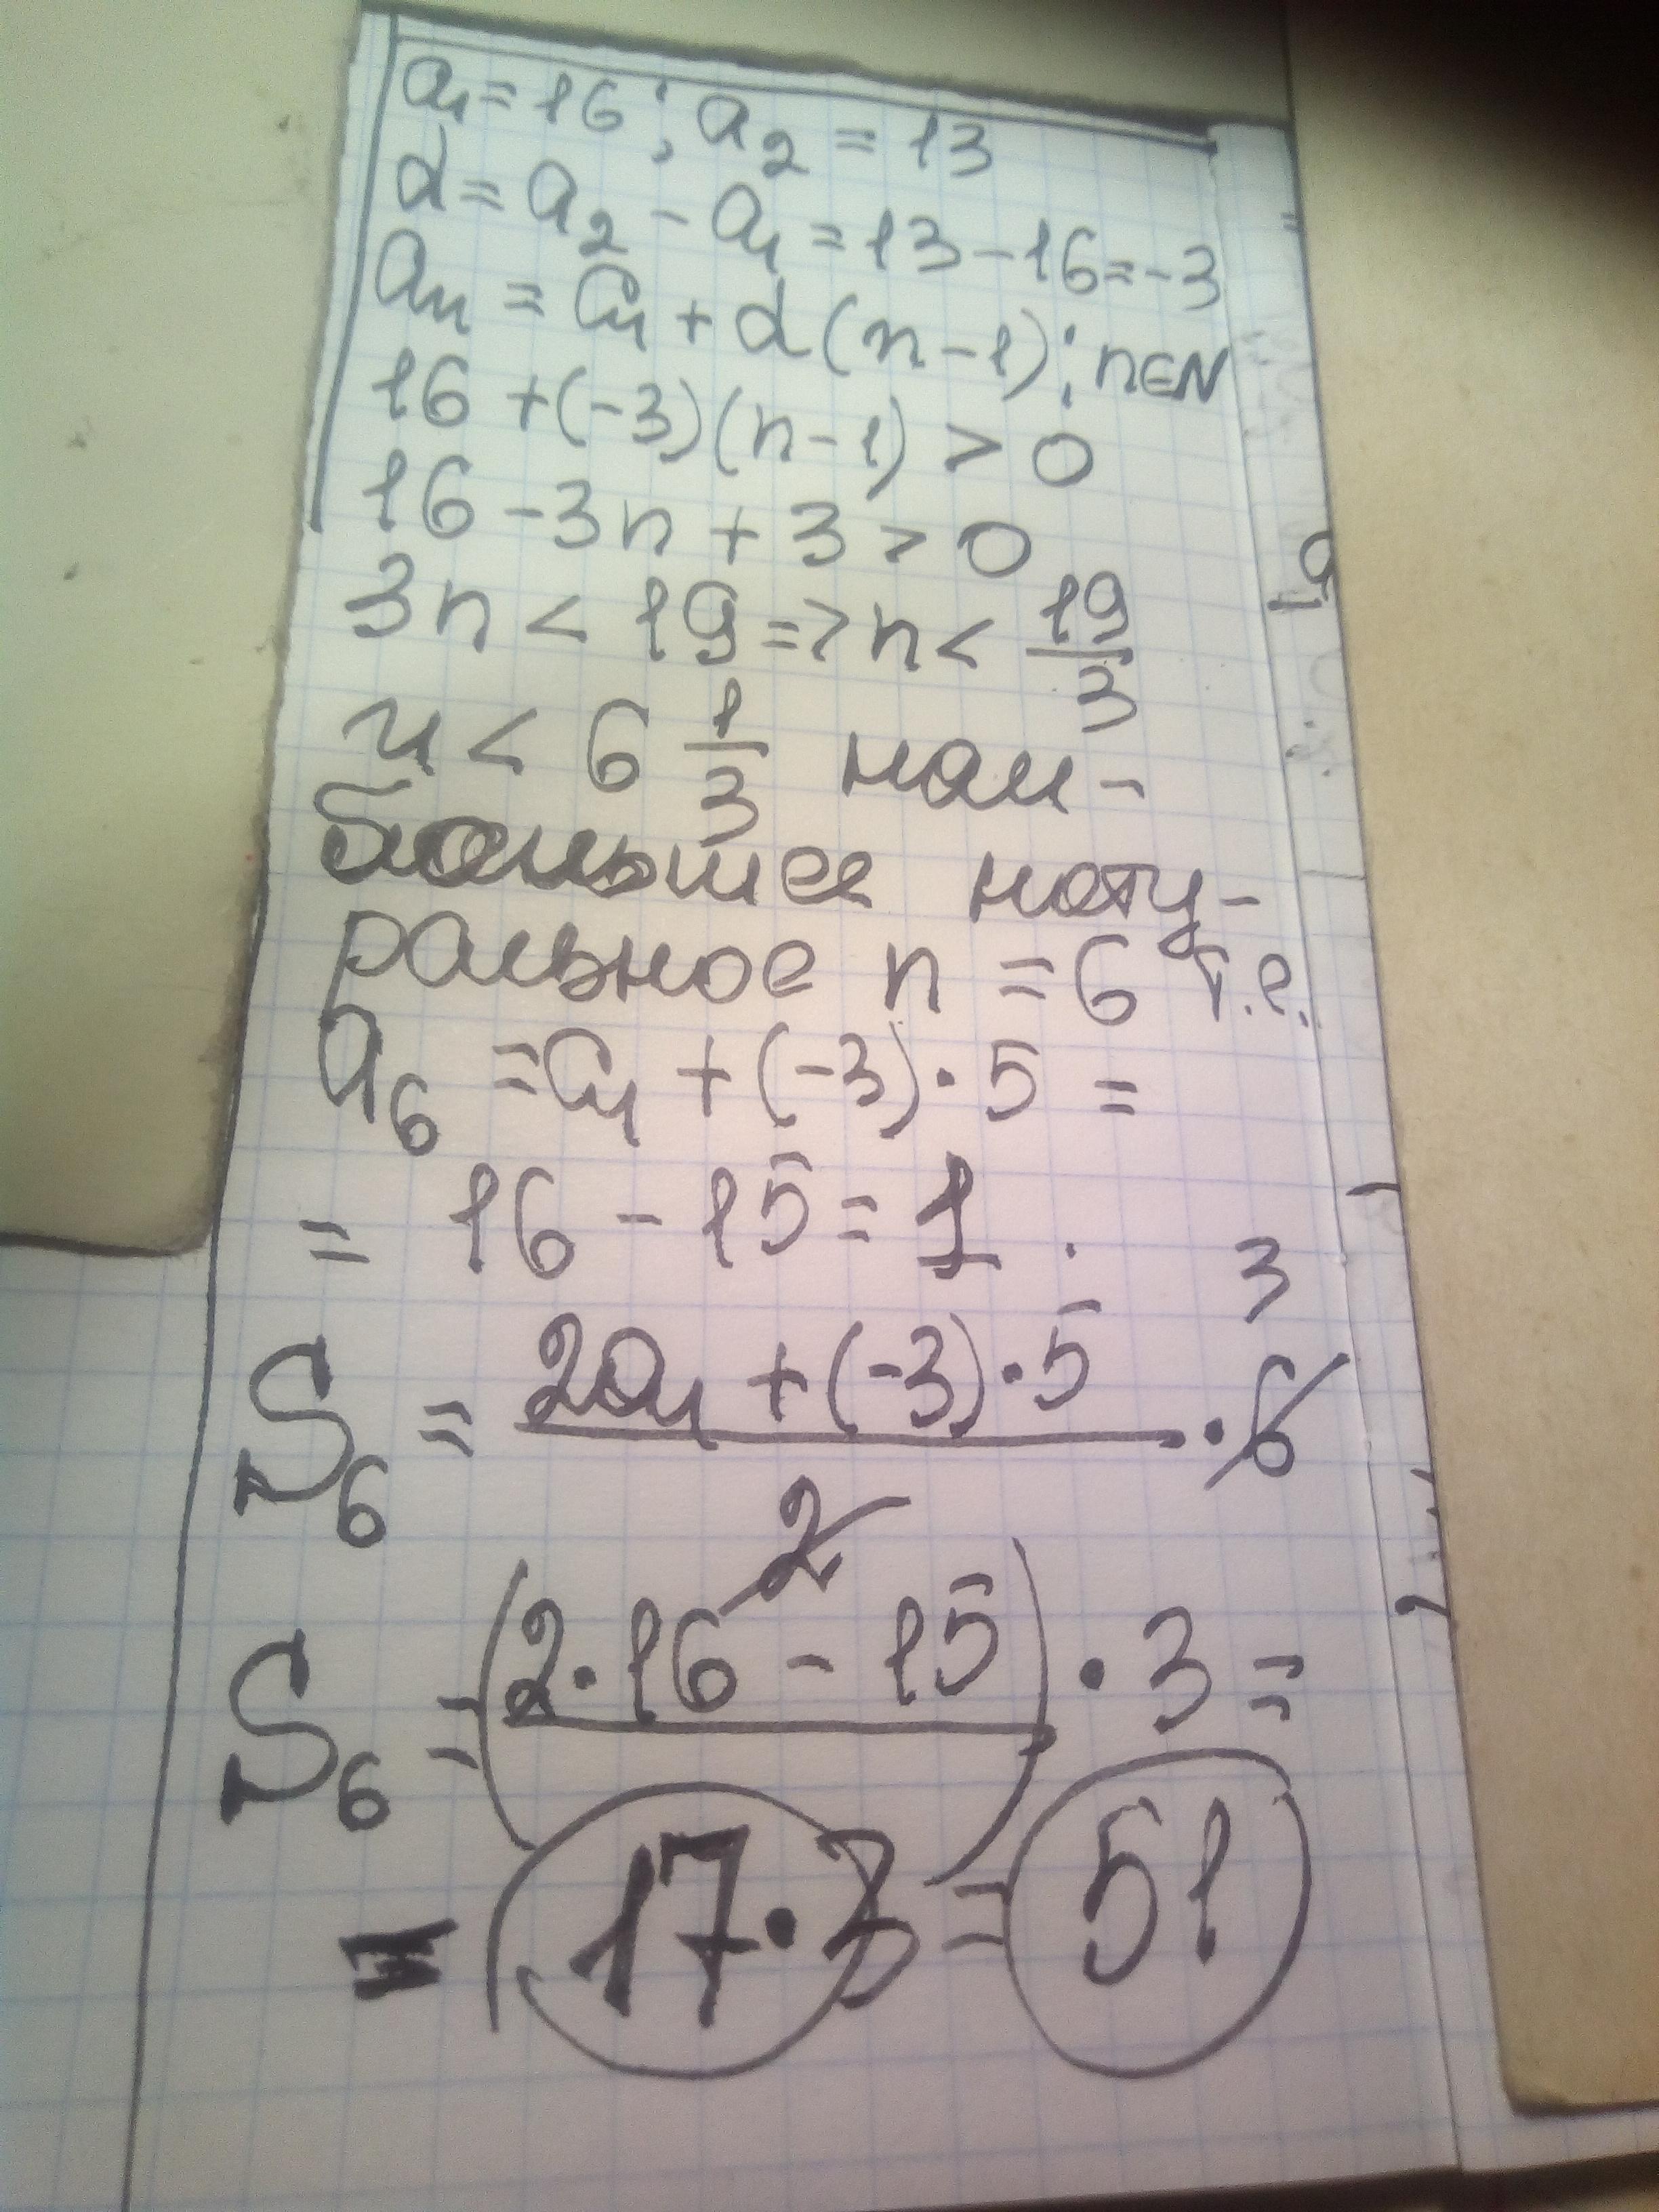 a₁ = 16 ; a₂ = 13
d = a₂ - a₁ = 13 - 16 = -3
aₙ = a₁ + d (n - 1) ; n∈N
16 + (-3) (n - 1) > 0
16 - 3n + 3 > 0
3n < 19 => n < 19/3
n < 6 1/3 наи-
большее нату-
ральное n = 6 т.е.
a₆ = a₁ + (-3) · 5 =
= 16 - 15 = 1
3
S₆ = 2a₁ + (-3) · 5 / 2 · 6
S₆ = (2 · 16 - 15) · 3 =
= 17 · 3 = 51